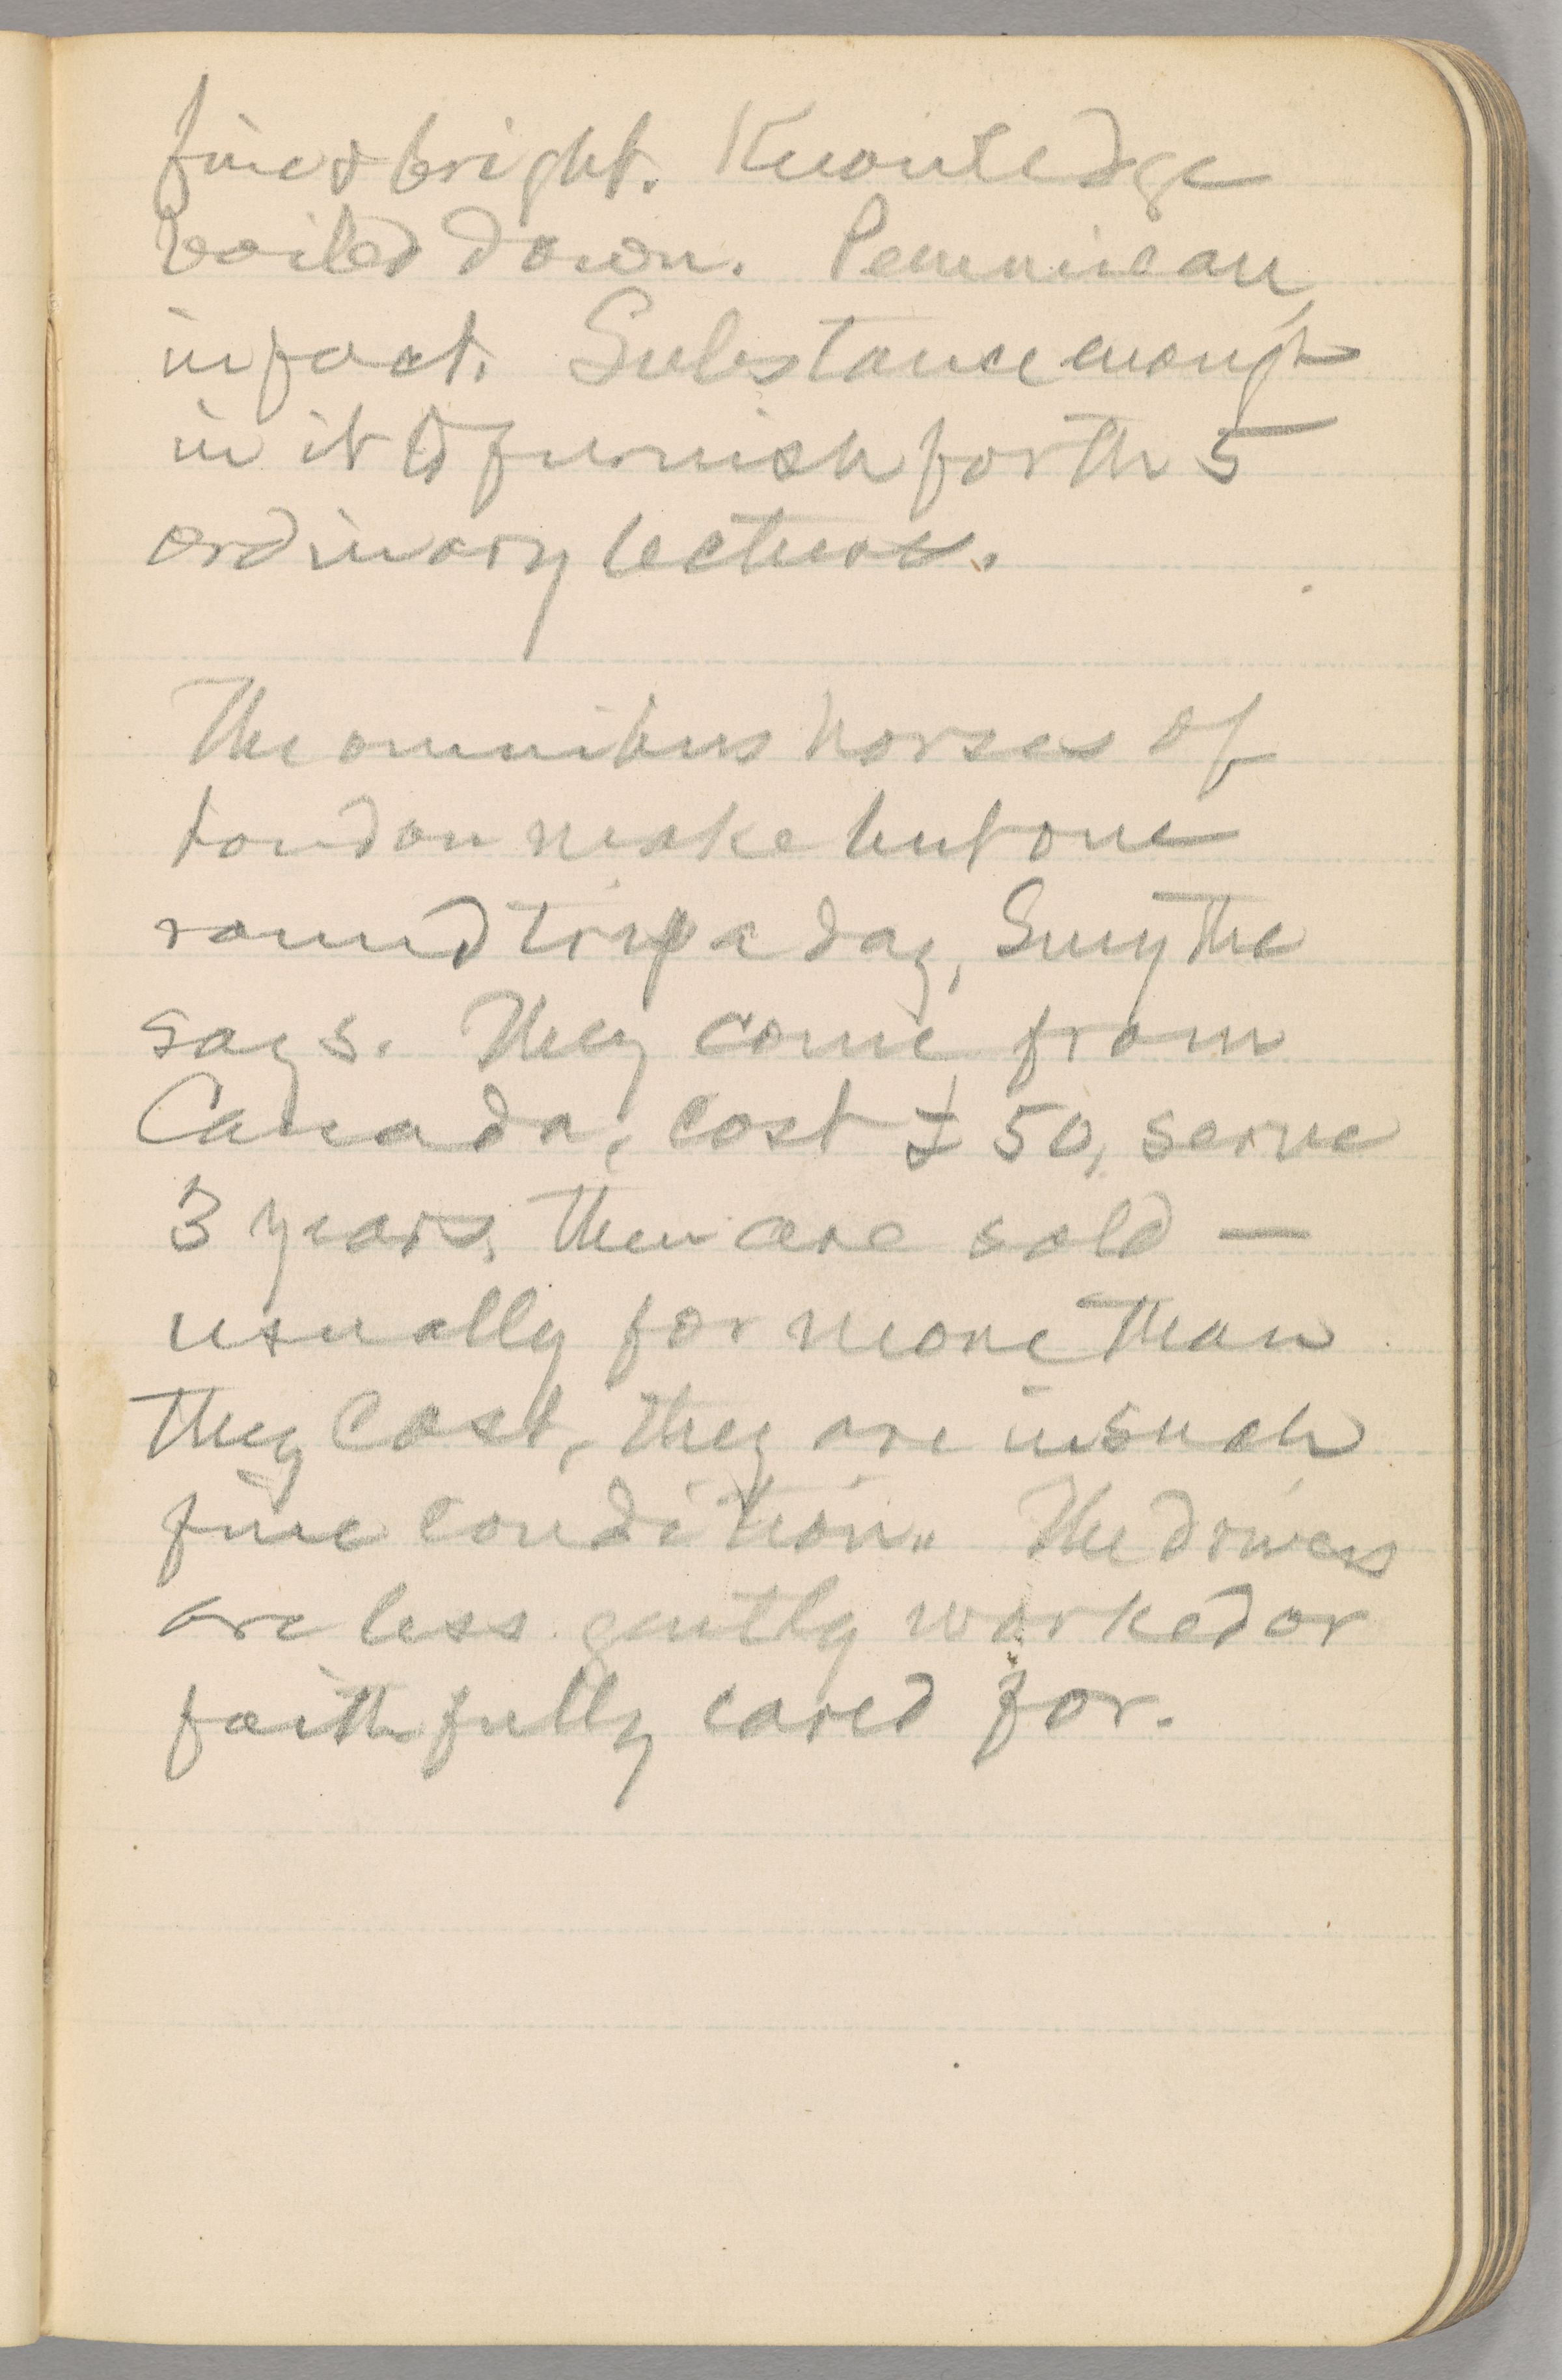 fine & bright. Knowledge
boiled down. Pemmican,
in fact. Substance enough
in it to furnish forth 5
ordinary lectures.
The omnibus horses of
London make but one
round trip a day, Smythe
says. They come from
Canada, cost £50, serve
3 years, then are sold —
usually for more than
they cost, they are in such
fine condition. The drivers
are less gently worked or
faithfully cared for.